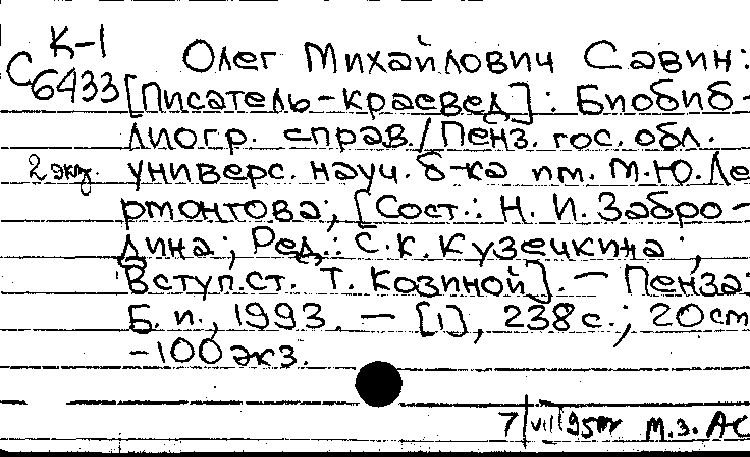 К-1
С6433
Олег Михайлович Савин:
[Писатель-краевед]: Биобиб-
лиогр. справ./Пенз. гос. обл.
2 экз.
универс. науч. б-ка им. М.Ю.Ле
рмонтова; [Сост.: Н. И. Забро-
дина; Ред.: С.К.Кузечкина;
Вступ.ст. Т. Козиной]. — Пенза:
Б. и., 1993. — [1], 238 с.; 20 cm
-100 экз.
7/VIII 95
м.з. АС